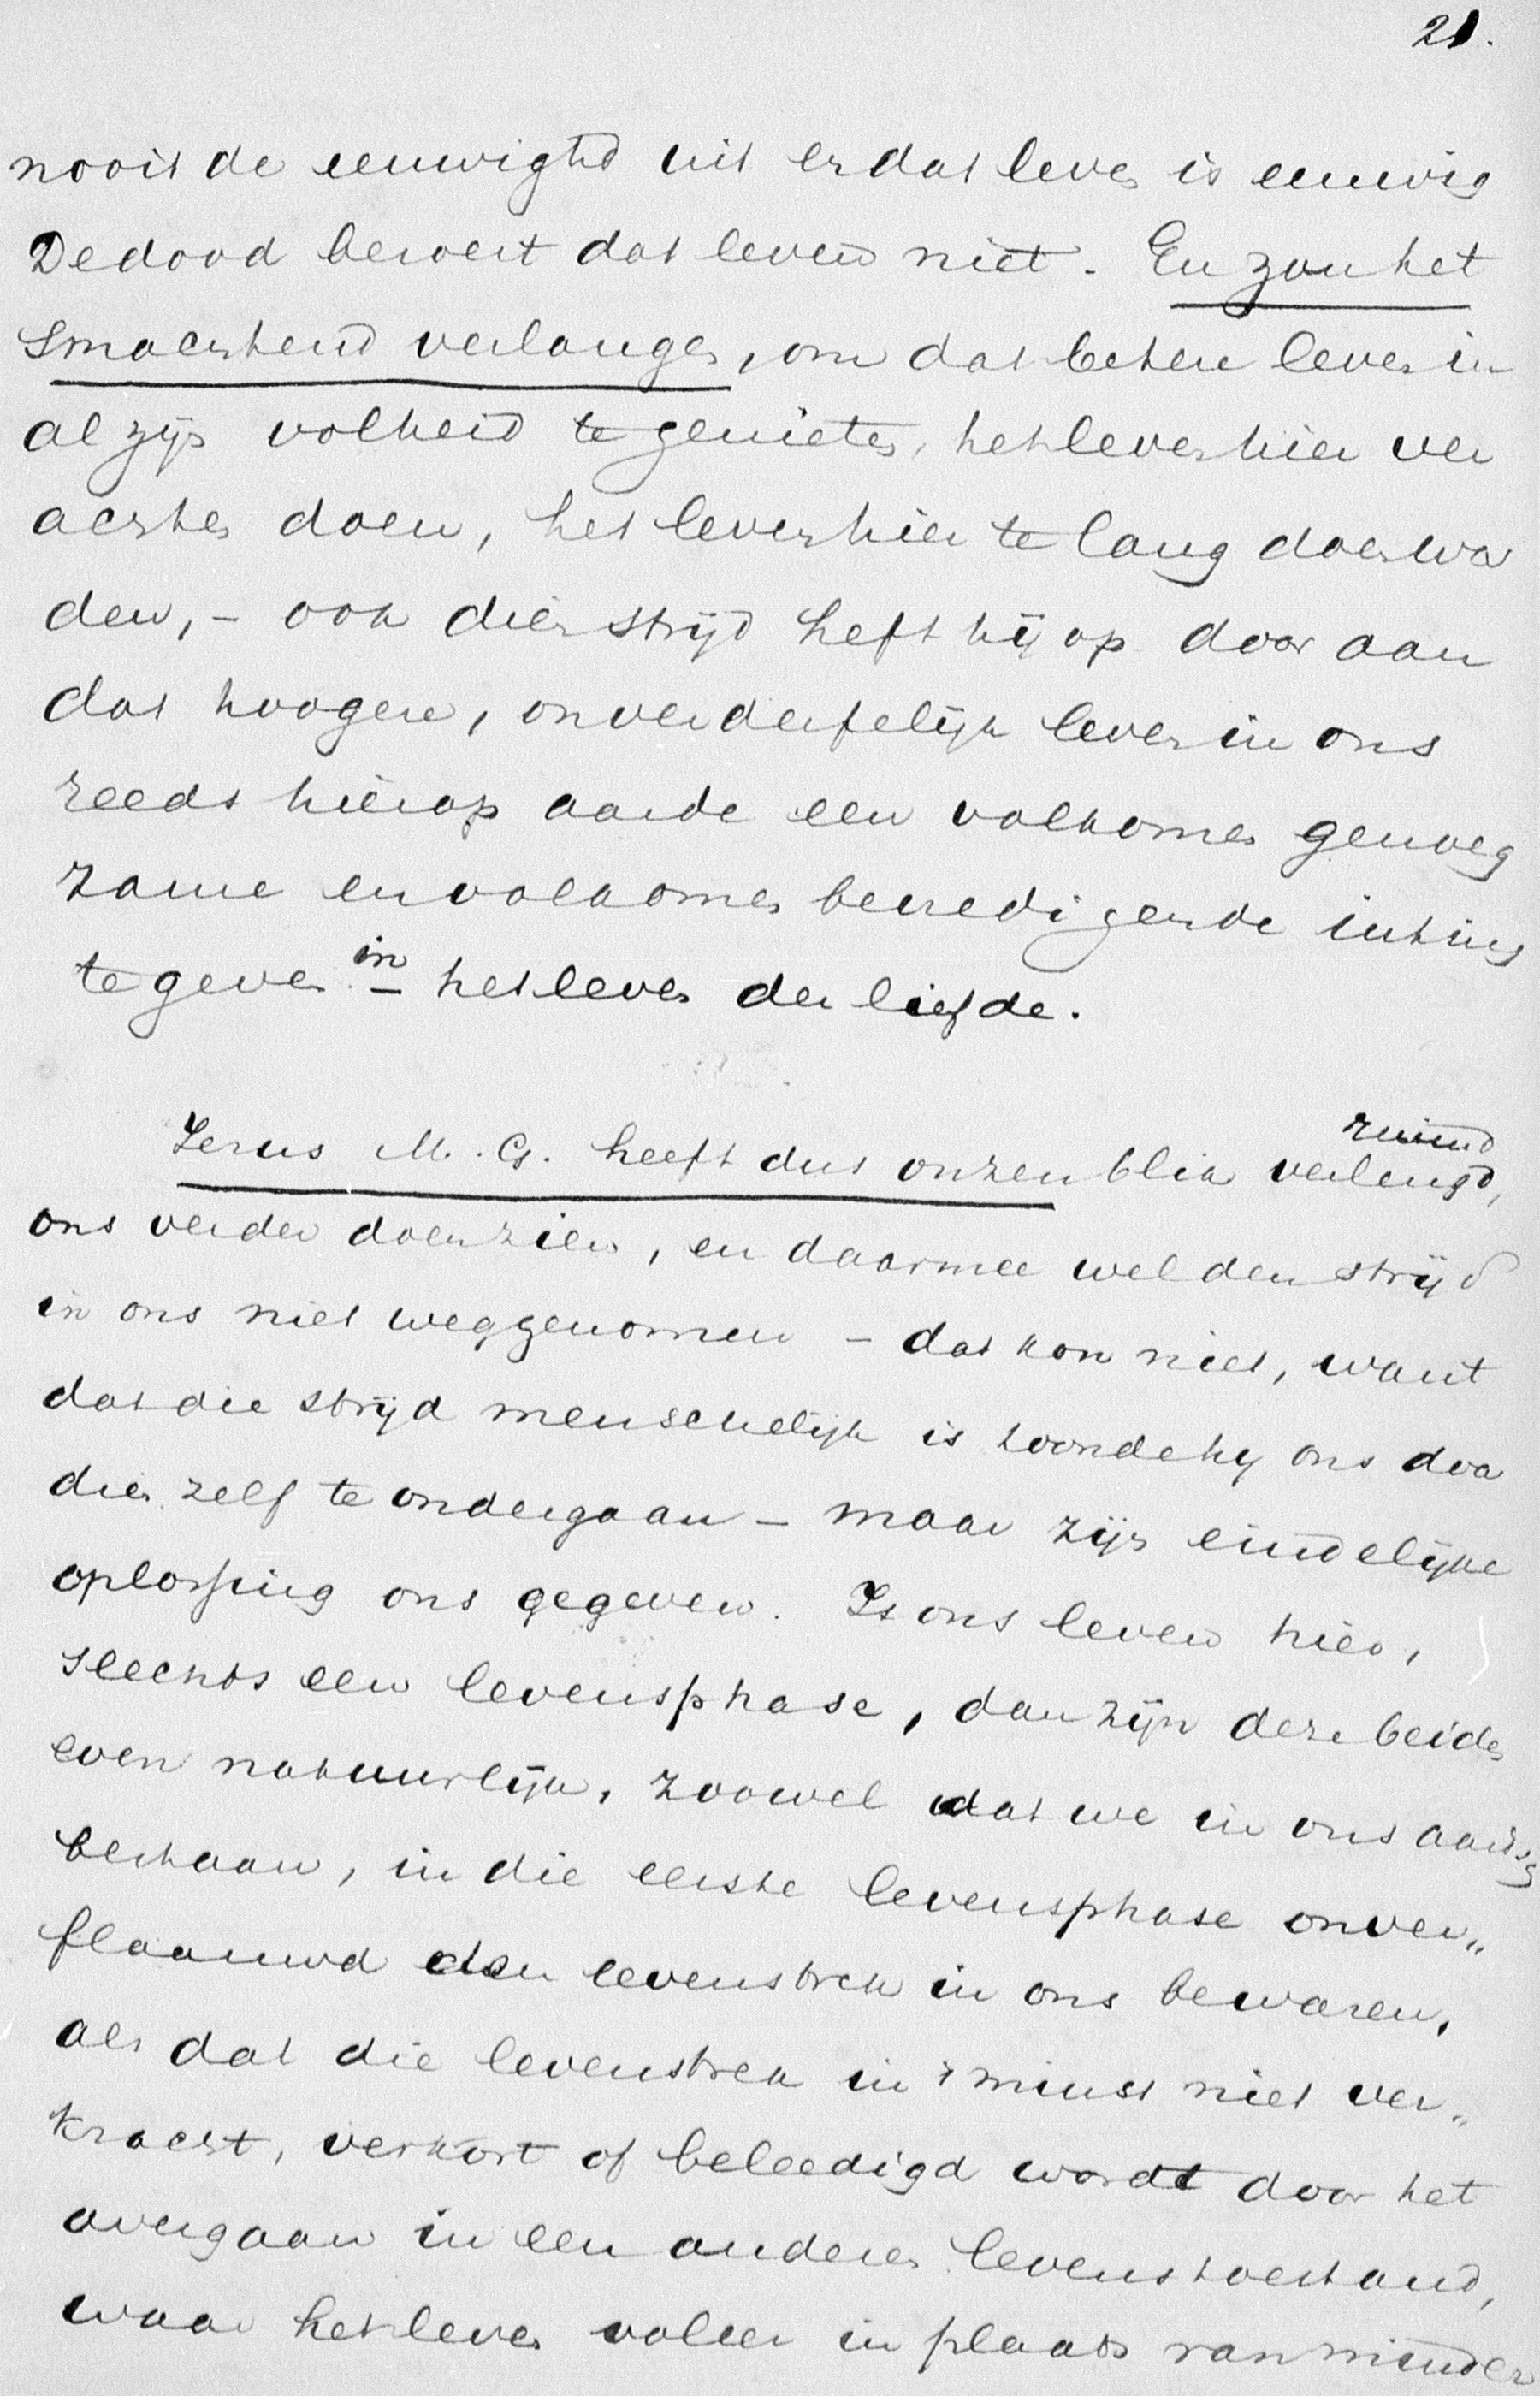 21.
nooit de eeuwighd uit en dat leven is eeuwig
De dood beroert dat leven niet. En zou het
smachtend verlangen, om dat betere leven in
al zijn volheid te genieten, het leven hier ver
achten doen, het leven hier te lang doen wor
den, – ook dien strijd heft hij op door aan
dat hoogere, onverderfelijk leven in ons
reeds hier op aarde een volkomen genoeg
zame en volkomen bevredigende uiting
te geven in – het leven der liefde.
Jezus M. G. heeft dus onzen blik verlengd, ruimd
ons verder doen zien, en daarmee wel den strijd
in ons niet weggenomen – dat kon niet, want
dat die strijd menschelijk is toonde hij ons door
dien zelf te ondergaan – maar zijn eindelijke
oplossing ons gegeven. Is ons leven hier,
slechts een levensphase, dan zijn deze beiden
even natuurlijk, zoowel dat we in ons aardsch
bestaan, in die eerste levensphase onver„
flaauwd den levenstrek in ons bewaren,
als dat die levenstrek in 't minst niet ver„
kracht, verkort of beleedigd wordt door het
overgaan in een anderen levenstoestand,
waar het leven voller in plaats van minder